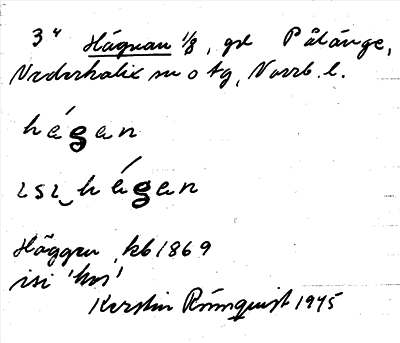 3" Hägnan 1/8, gd Pålänge,
Nederkalix sn o tg, Norrb. l.
hégan
ısı hégan
Häggen, kb 1869
isi 'hos'
Kerstin Rönnquist 1945